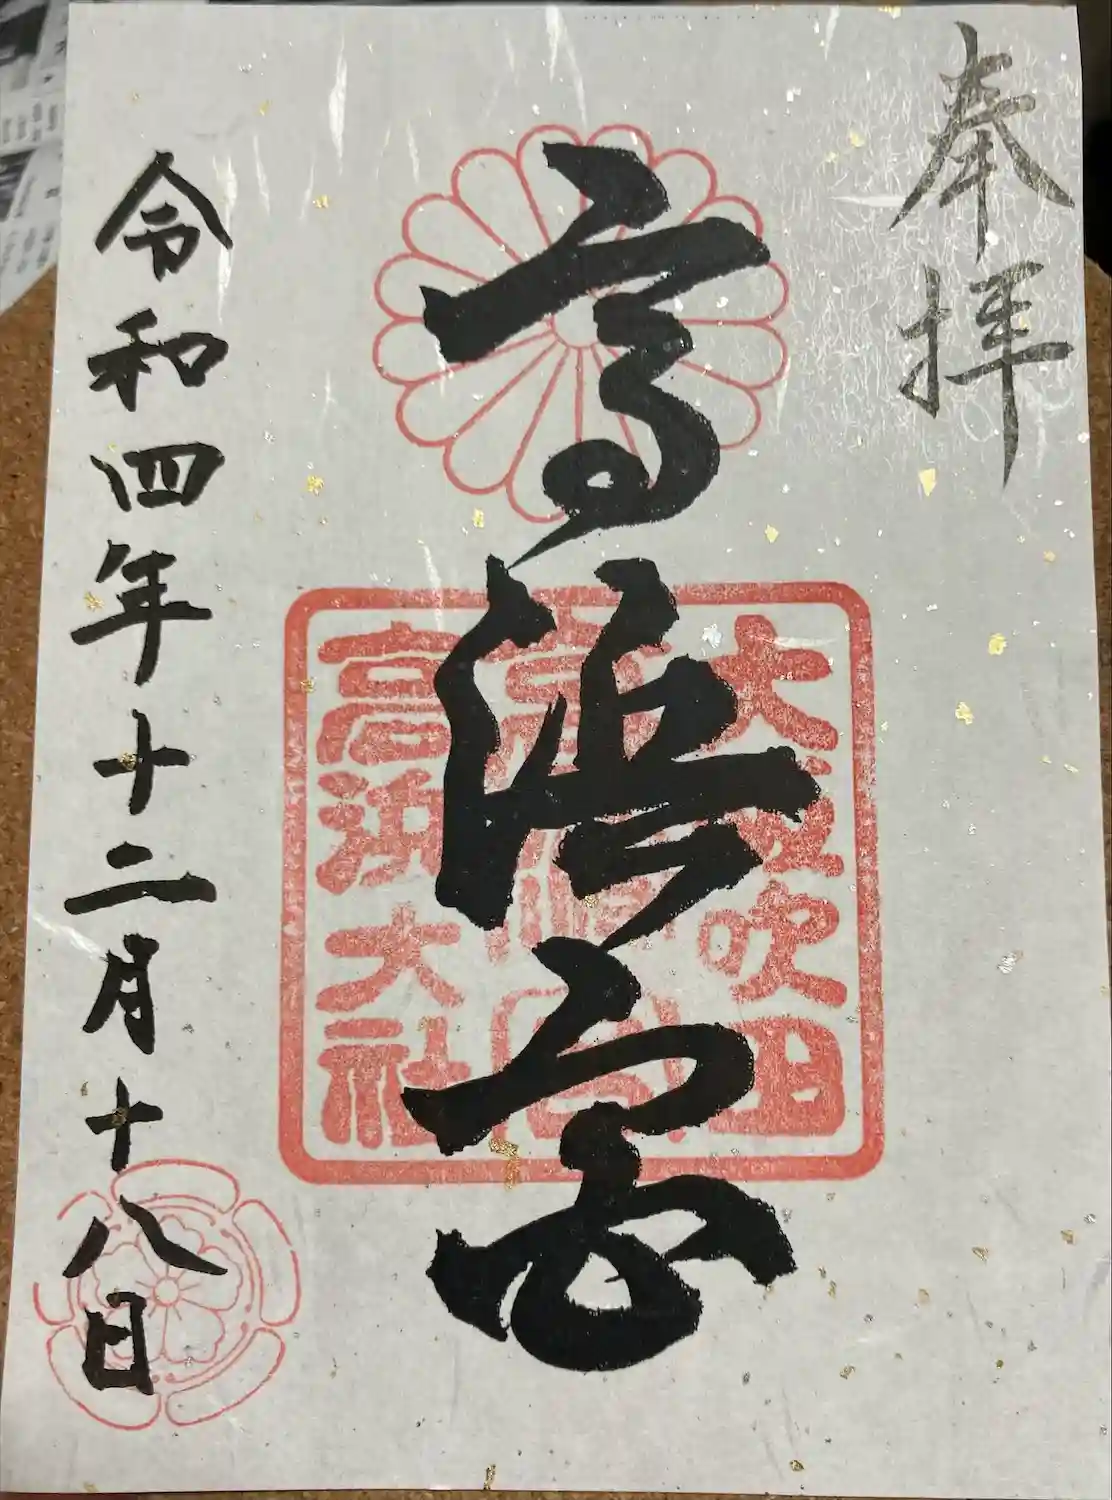 奉拝
高浜宮
大阪吹田
高浜大社
令和四年十二月十八日